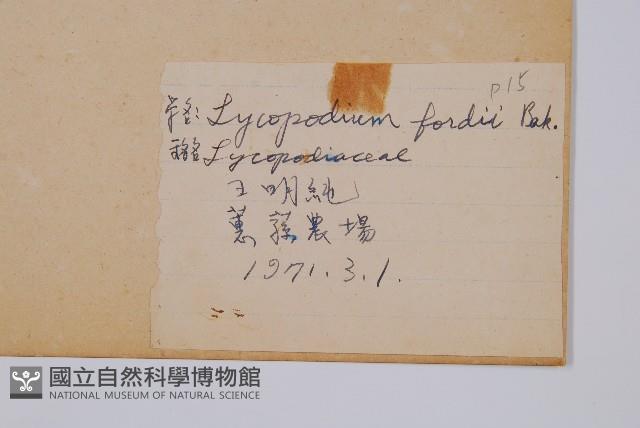 p15
学名: Lycopodium fordii Bak.
科名: Lycopodiaceae
王明純
蕙蓀農場
1971.3.1.
國立自然科學博物館
NATIONAL MUSEUM OF NATURAL SCIENCE